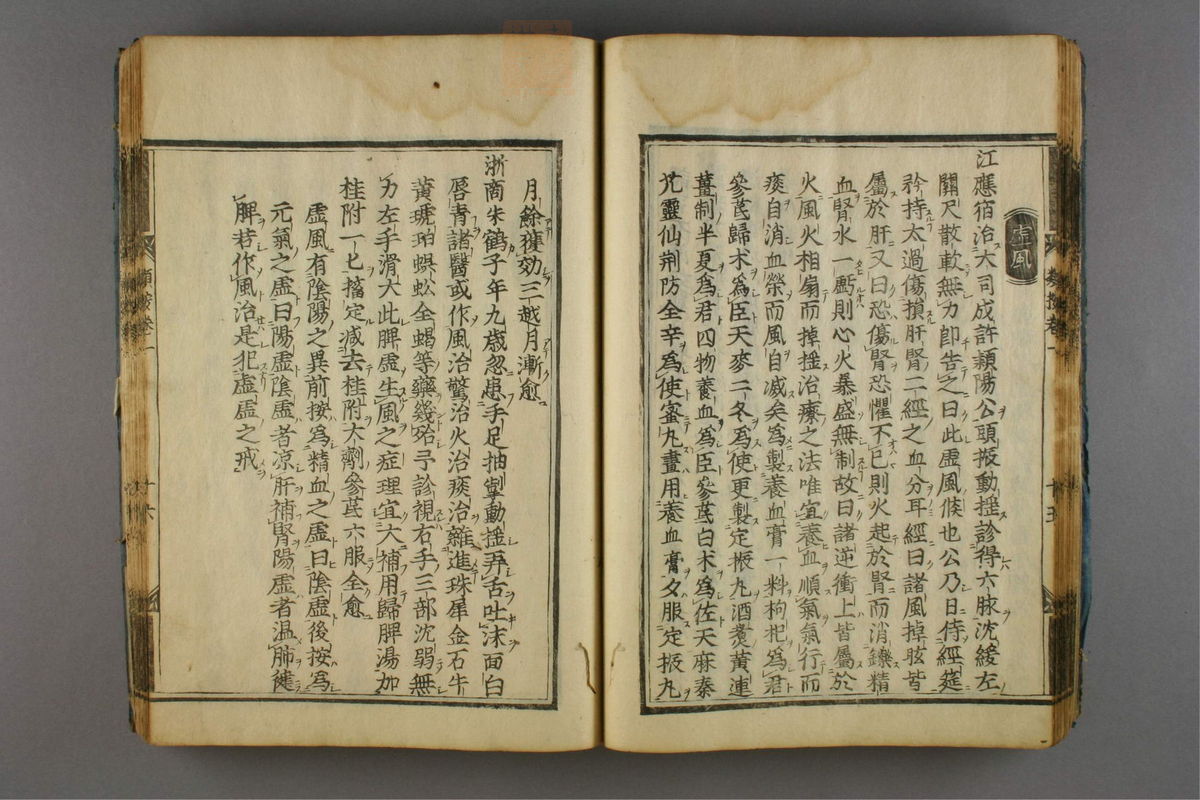 虛風
江應宿治大司成許潁陽公頭振動搖診得六脉沈緩左
關尺散軟無力卽告之曰此虛風候也公乃日侍經筵
矜持太過傷損肝腎二經之血分耳經曰諸風掉眩皆
屬於肝又曰恐傷腎恐懼不已則火起於腎而消鑠精
血腎水一虧則心火暴盛無制故曰諸逆衝上皆屬於
火風火相扇而掉搖治療之法唯宜養血順氣氣行而
痰自消血榮而風自滅矣爲製養血膏一料枸杞爲君
參芪歸术爲臣天麥二冬爲使更製定振丸酒煑黃連
薑制半夏爲君四物養血爲臣參芪白术爲佐天麻秦
艽靈仙荆防全辛爲使蜜丸晝用養血膏夕服定振丸
月餘獲効三越月漸愈
浙商朱鶴子年九歳忽患手足抽掣動搖弄舌吐沫面白
唇青諸醫或作風治驚治火治痰治雜進珠犀金石牛
黃琥珀蜈蚣全蝎等藥幾殆予診視右手三部沈弱無
力左手滑大此脾虛生風之症理宜大補用歸脾湯加
桂附一匕搐定减去桂附大劑參芪六服全愈
虛風有陰陽之異前按爲精血之虛曰陰虛後按爲
元氣之虛曰陽虛陰虛者凉肝補腎陽虛者温肺健
脾若作風治是犯虛虛之戒
類按卷一
十五
類按卷一
十六